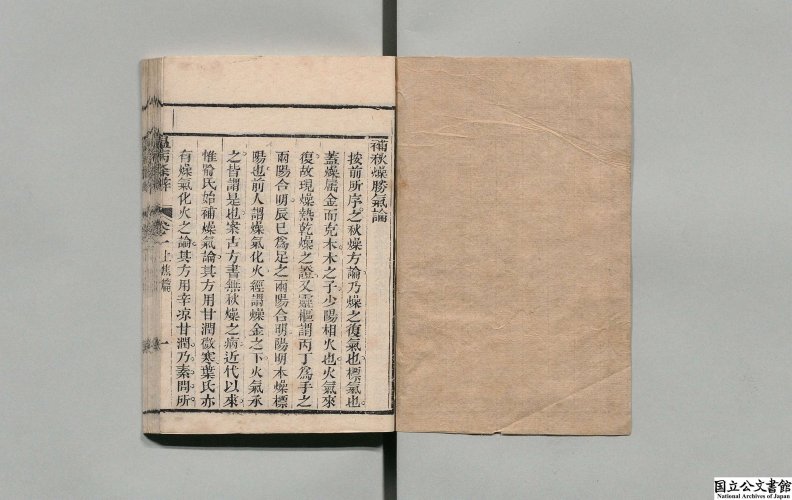 補秋燥勝氣論
按前所序之秋燥方論乃燥之復氣也標氣也
蓋燥屬金而克木木之子少陽相火也火氣來
復故現燥熱乾燥之證又靈樞謂丙丁爲手之
兩陽合明辰巳爲足之兩陽合明陽明本燥標
陽也前人謂燥氣化火經謂燥金之下火氣承
之皆謂是也案古方書無秋燥之病近代以來
惟喻氏始補燥氣論其方用甘潤微寒葉氏亦
有燥氣化火之論其方用辛凉甘潤乃素問所
溫病條辨 卷一上焦篇 一
国立公文書館
National Archives of Japan